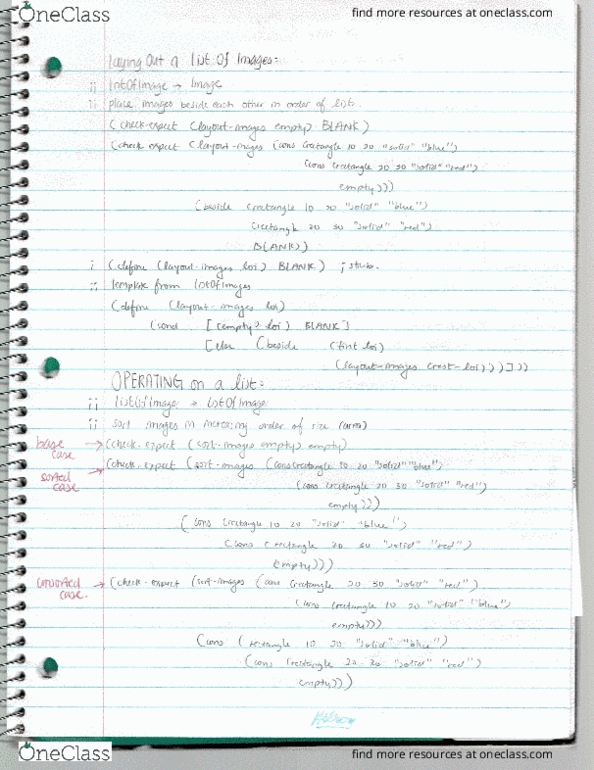 OneClass find more resources at oneclass.com
Laying Out a list Of Images:
;; ListOfImage → Image
;; place images beside each other in order of list.
(check-expect (layout-images empty) BLANK)
(check expect (layout-images (cons (rectangle 10 20 "solid" "blue")
(cons (rectangle 20 30 "solid" "red")
empty)))
(beside (rectangle 10 20 "solid" "blue")
(rectangle 20 30 "solid" "red")
BLANK))
; (define (layout-images loi) BLANK) ; stub.
;; template from listOfImages
(define (layout-images loi)
(cond [(empty? loi) BLANK]
[else (beside (first loi)
(layout-images (rest loi)))]))
OPERATING on a list:
;; listOfImage → listOfImage
;; sort images in increasing order of size (area)
base case → (check-expect (sort-images empty) empty)
sorted case → (check-expect (sort-images (cons (rectangle 10 20 "solid" "blue")
(cons (rectangle 20 30 "solid" "red")
empty)))
(cons (rectangle 10 20 "solid" "blue")
(cons (rectangle 20 30 "solid" "red")
empty)))
unsorted case. → (check-expect (sort-images (cons (rectangle 20 30 "solid" "red")
(cons (rectangle 10 20 "solid" "blue")
empty)))
(cons (rectangle 10 20 "solid" "blue")
(cons (rectangle 20 30 "solid" "red")
empty)))
OneClass find more resources at oneclass.com